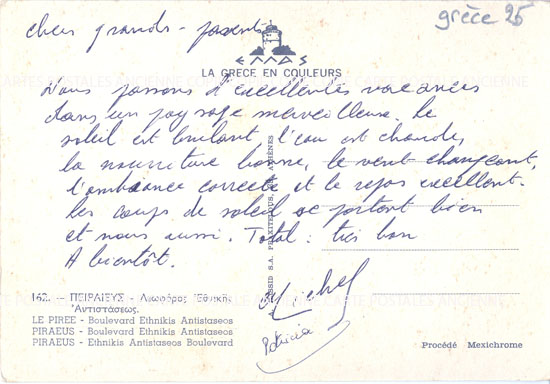 grèce 25
chers grands-parents
ΕΛΛΑΣ
LA GRECE EN COULEURS
Nous passons d'excellentes vacances
dans un paysage merveilleux. Le
soleil est brulant, l'eau est chaude,
la nourriture bonne, le vent changeant,
l'ambiance correcte et le repos excellent.
Les coups de soleil se portent bien
et nous aussi. Total : très bon
A bientôt.
Michel
Patricia
162. - ΠΕΙΡΑΙΕΥΣ - Λεωφόρος Ἐθνικῆς
Ἀντιστάσεως.
LE PIREE - Boulevard Ethnikis Antistaseos
PIRAEUS - Boulevard Ethnikis Antistaseos
PIRAEUS - Ethnikis Antistaseos Boulevard
Procédé Mexichrome